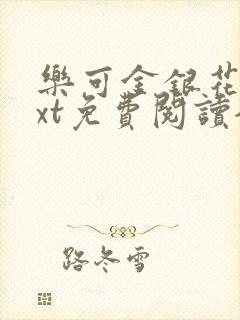 樂可金銀花
xt免費閱讀
路冬雪